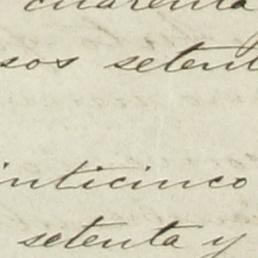 cuarenta
sos setent
inticinco
setenta y